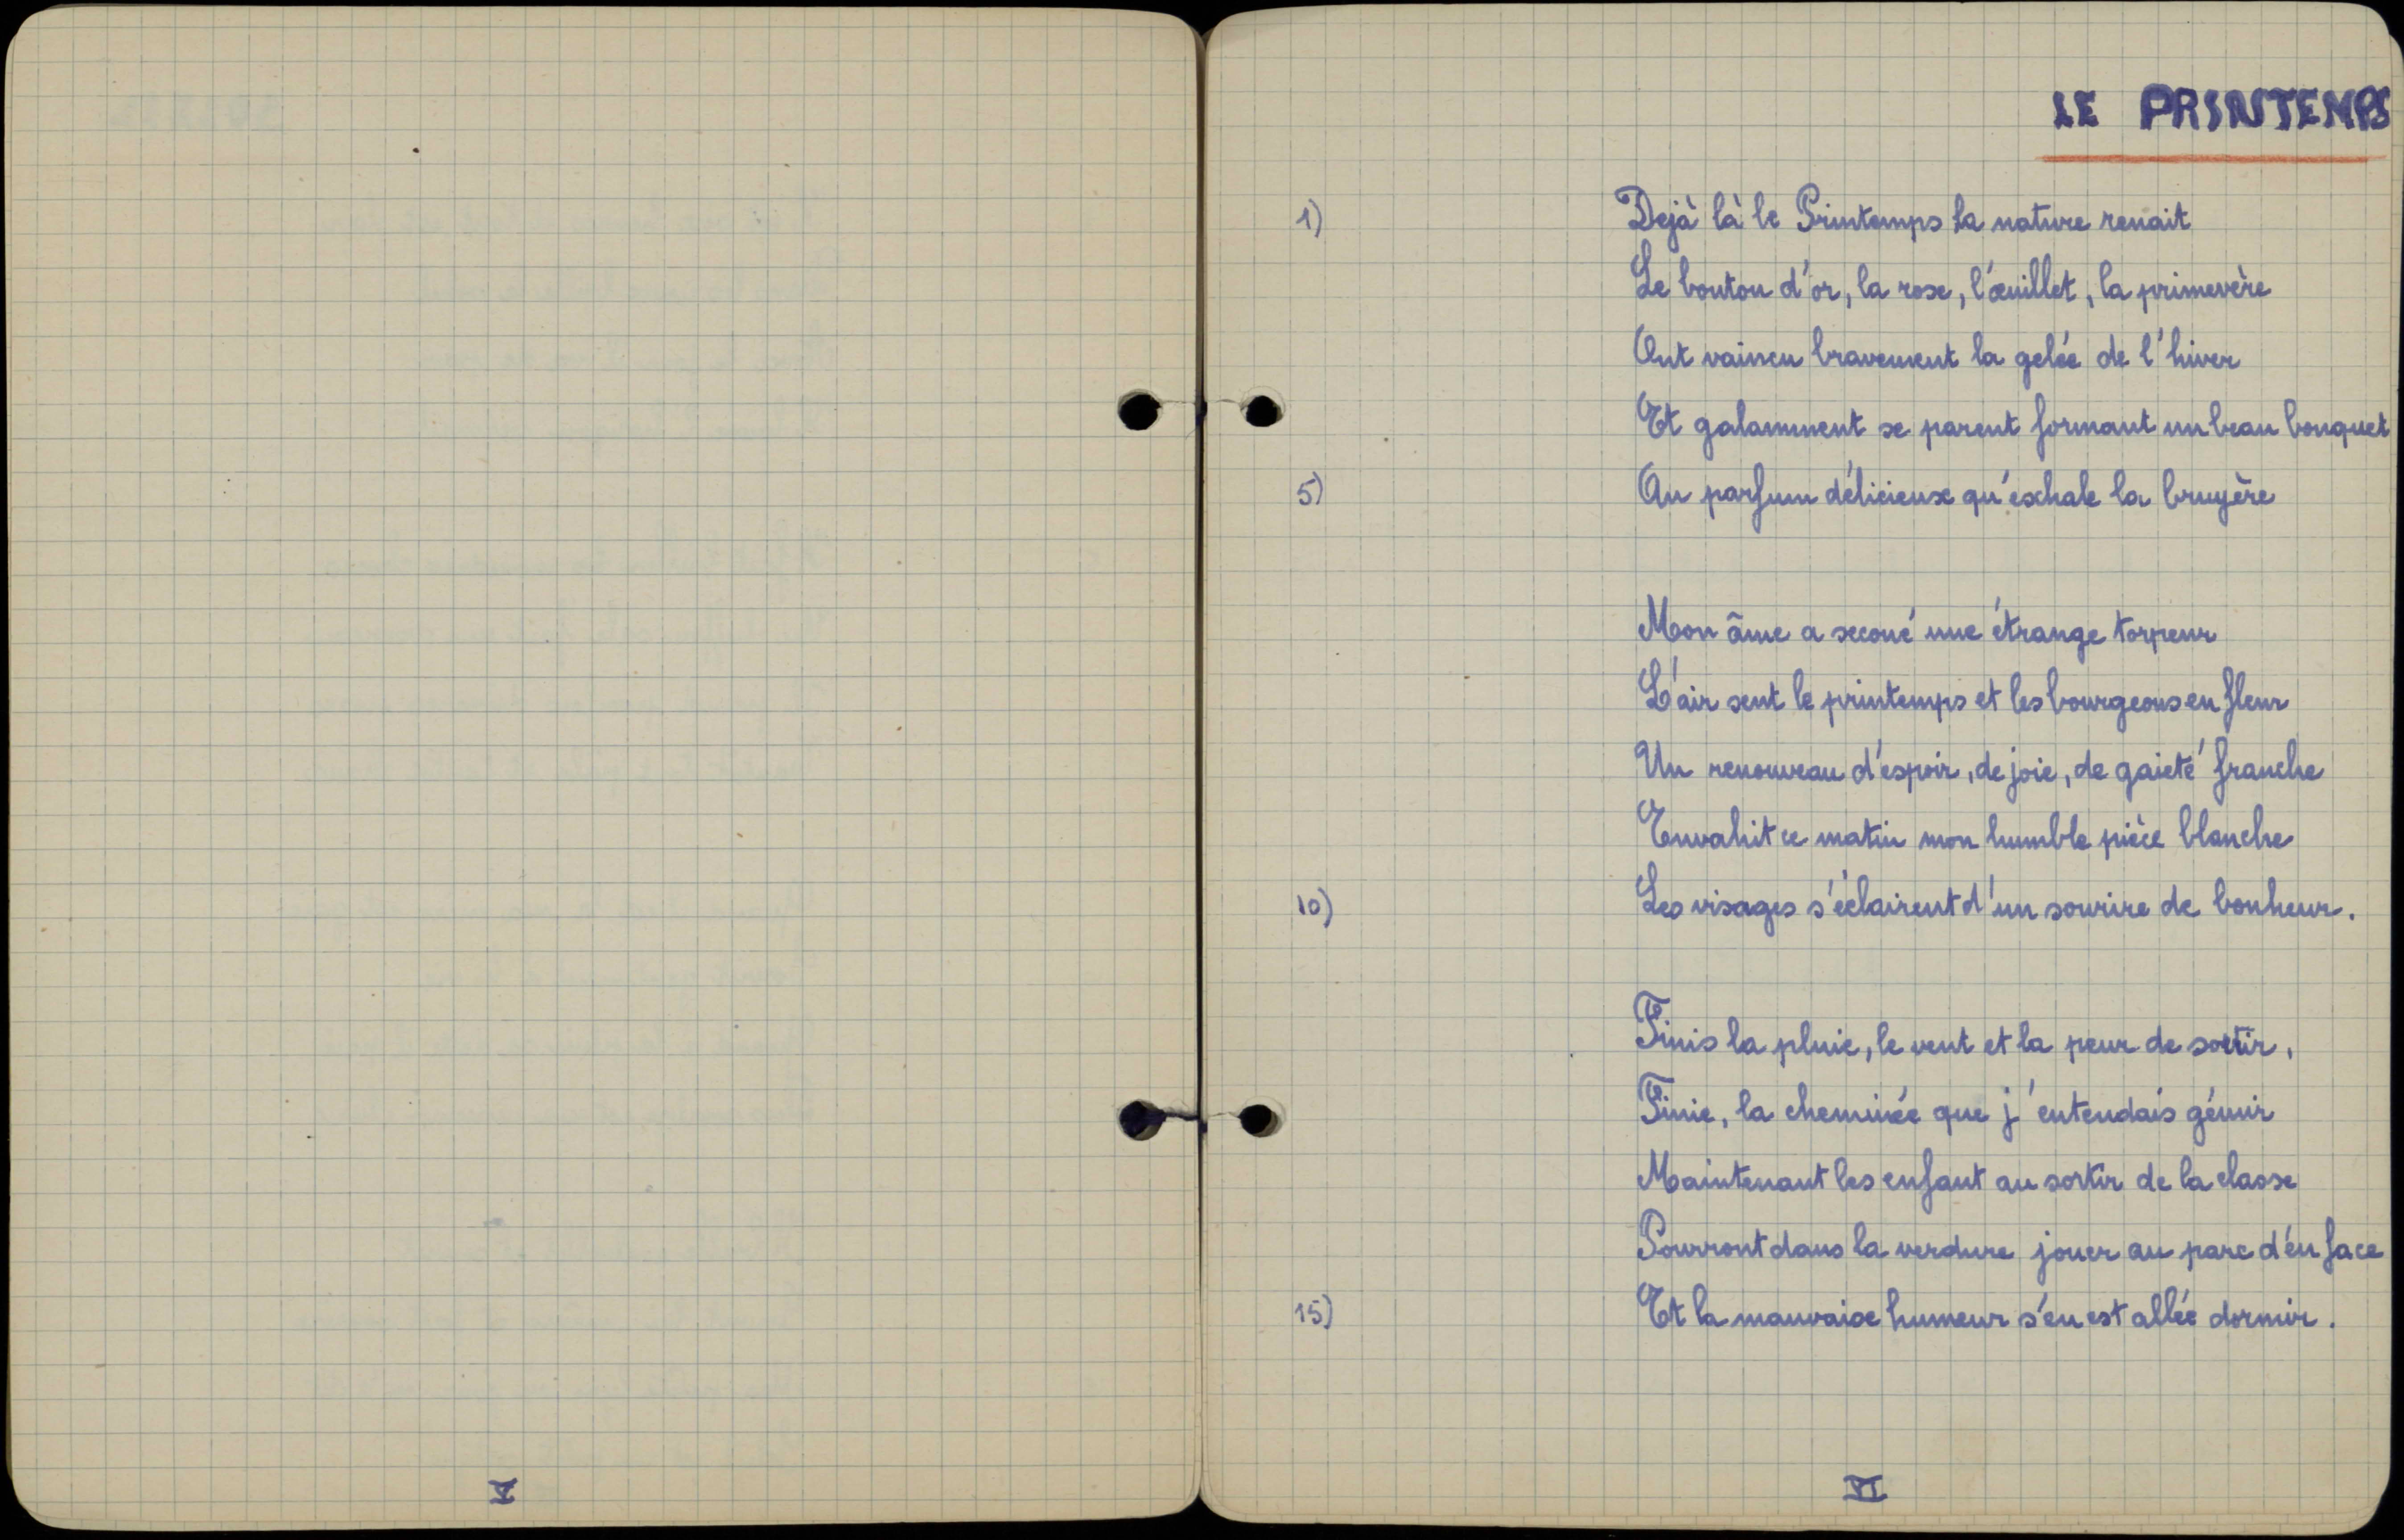 V
LE PRINTEMPS
1) Dejà là le Printemps la nature renait
Le bouton d'or, la rose, l'œuillet, la primevère
Ont vaincu bravement la gelée de l'hiver
Et galamment se parent formant un beau bouquet
5) Au parfum délicieux qu'exhale la bruyère
Mon âme a secoué une étrange torpeur
L'air sent le printemps et les bourgeons en fleur
Un renouveau d'espoir, de joie, de gaieté franche
Envahit ce matin mon humble pièce blanche
10) Les visages s'éclairent d'un sourire de bonheur.
Finis la pluie, le vent et la peur de sortir,
Finie, la cheminée que j'entendais gémir
Maintenant les enfant au sortir de la classe
Pourront dans la verdure jouer au parc d'en face
15) Et la mauvaise humeur s'en est allée dormir.
VI